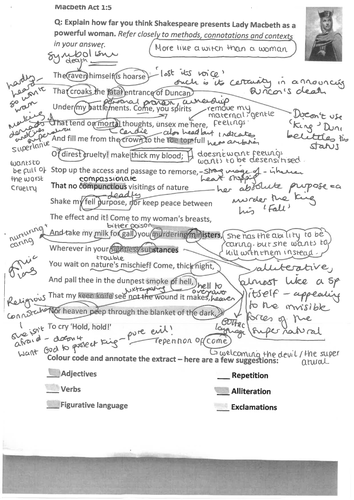 Macbeth Act 1:5
Q: Explain how far you think Shakespeare presents Lady Macbeth as a
powerful woman. Refer closely to methods, connotations and contexts
in your answer.
More like a witch than a woman
symbolism
death
The raven himself is hoarse
'lost its voice'
such is its certainty in announcing
Duncan's death
That croaks the fatal entrance of Duncan
Doesn't use
'King' Dun
belittles the
status
personal pronoun, ownership
Under my battlements. Come, you spirits
remove my
maternal/gentle
feelings
That tend on mortal thoughts, unsex me here,
also headband indicates
her ambition
And fill me from the crown to the toe top-full
superlative
wants to
be full of
the worst
cruelty
Of direst cruelty! make thick my blood;
doesn't want feelings
wants to be desensitised
Stop up the access and passage to remorse,
compassionate
That no compunctious visitings of nature
her absolute purpose =
murder the King
his 'fall'
deadly
Shake my fell purpose, nor keep peace between
The effect and it! Come to my woman's breasts,
nurturing
caring
bitter poison
And take my milk for gall, you murdering ministers,
She has the ability to be
caring but she wants to
kill with them instead.
Wherever in your sightless substances
trouble
You wait on nature's mischief! Come, thick night,
alliterative,
almost like a sp
itself - appealing
to the invisible
forces of the
supernatural
And pall thee in the dunnest smoke of hell,
hell to
overpower
heaven
Religious
connection
That my keen knife see not the wound it makes,
Nor heaven peep through the blanket of the dark,
To cry 'Hold, hold!'
she isn't
afraid - doesn't
want God to protect King - pure evil!
repetition of come
welcoming the devil/the super
natural
Colour code and annotate the extract – here are a few suggestions:
Adjectives
Repetition
Verbs
Alliteration
Figurative language
Exclamations